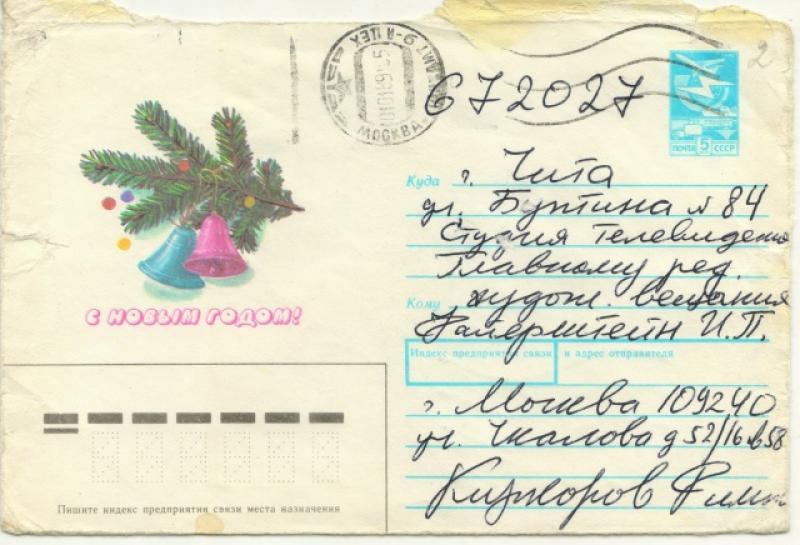 АМТ 9-й ЦЕХ
МОСКВА
2
672027
ПОЧТА 5 К СССР
Куда
г. Чита
ул. Бутина № 84
Студия телевидения
Главному ред.
худож. вещания
Кому
И.П.
Индекс предприятия связи и адрес отправителя
г. Москва 109240
ул. Чкалова д 52/16 кв 58
С НОВЫМ ГОДОМ!
Пишите индекс предприятия связи места назначения